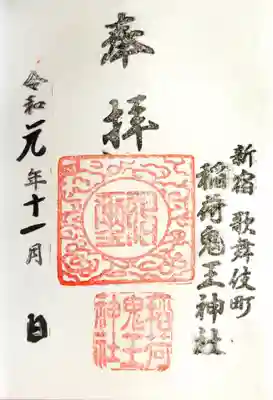 新宿歌舞伎町
稲荷鬼王神社
奉拝
令和元年十一月 日
稲荷
鬼王
神社